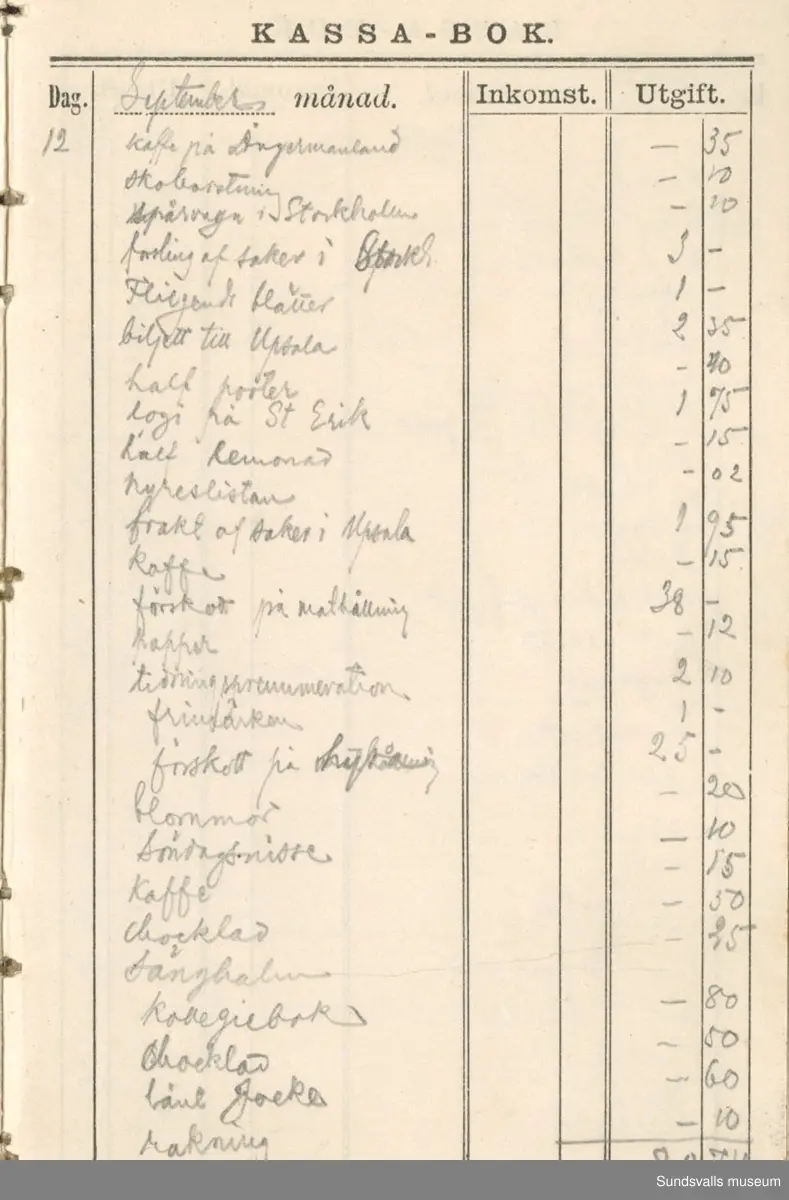 KASSA-BOK.
Dag. September månad. Inkomst. Utgift.
12 kaffe på Ångermanland — 35
skoborstning — 10
spårvagn i Stockholm — 10
forsling af saker i Stockh. 3 —
Fliegende blätter 1 —
biljett till Upsala 2 35
half porter — 40
logi på St Erik 1 75
half lemonad — 15
hyreslistan — 02
frakt af saker i Upsala 1 95
kaffe — 15
förskott på mathållning 38 —
papper — 12
tidningsprenumeration 2 10
frimärken 1 —
förskott på 25 —
blommor — 20
Söndagsnisse — 10
kaffe — 15
chocklad — 50
Sänghalm — 25
kollegiebok — 80
Chocklad — 50
lånt Jocke — 60
rakning — 10
Sundsvalls museum